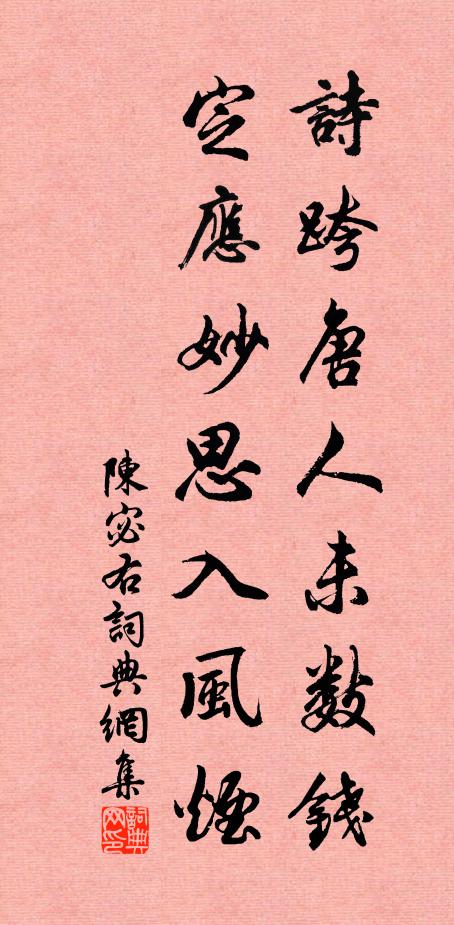 詩跨唐人未数錢
定應妙思入風煙
陳宓右詞典網集
詞典网印